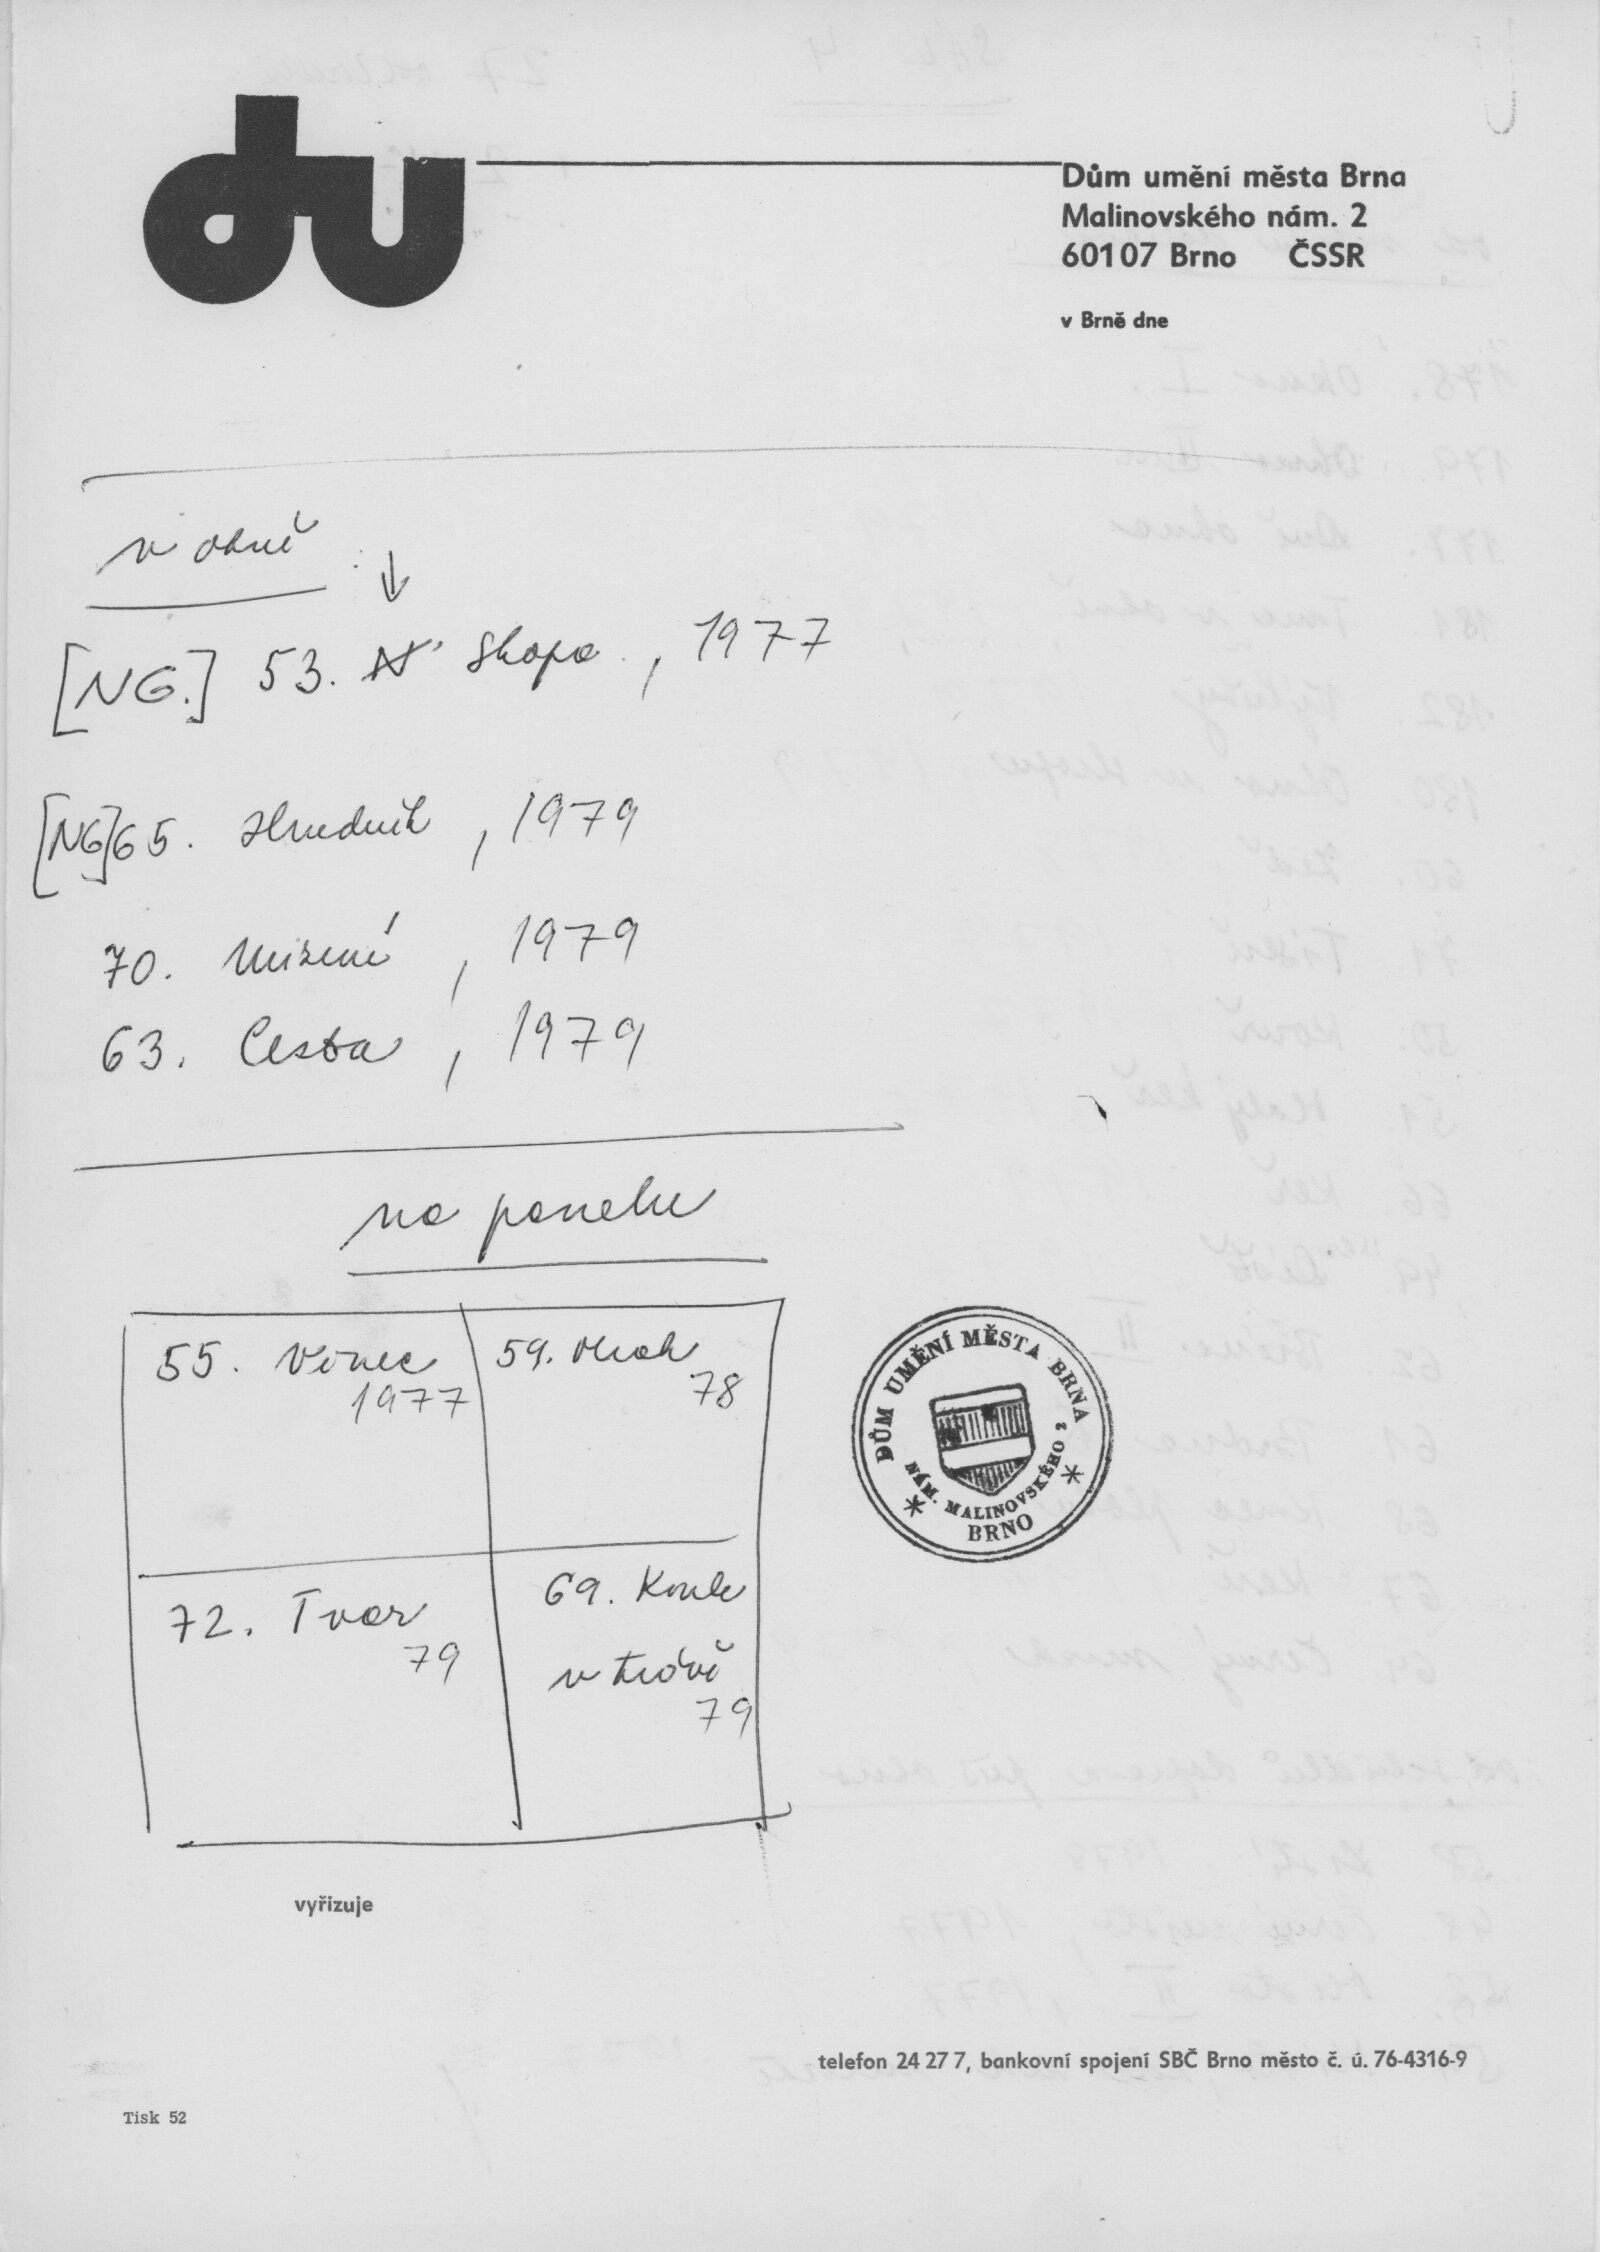 du
Dům umění města Brna
Malinovského nám. 2
60107 Brno ČSSR
v Brně dne
v okně
[NG.] 53. Skopo, 1977
[NG] 65. Hrudník, 1979
70. Mizení, 1979
63. Cesta, 1979
na panelu
55. Věnec
1977
59.
78
72. Tvar
79
69. Koule
v trávě
79
DŮM UMĚNÍ MĚSTA BRNA
NÁM. MALINOVSKÉHO 2
BRNO
vyřizuje
telefon 24 27 7, bankovní spojení SBČ Brno město č. ú. 76-4316-9
Tisk 52